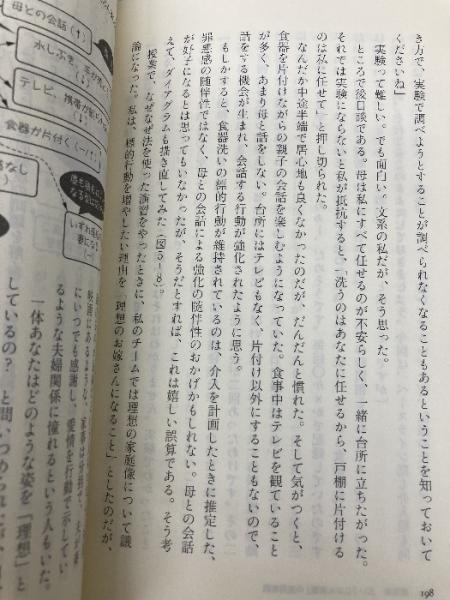 き方で、実験で調べようとすることが調べられなくなることもあるということを知っておいて
くださいね」
実験って難しい。でも面白い。文系の私だが、そう思った。
ところで後日談である。母は私にすべて任せるのが不安らしく、一緒に台所に立ちたがった。
それでは実験にならないと私が抵抗すると、「洗うのはあなたに任せるから、戸棚に片付ける
のは私に任せて」と押し切られた。
なんだか中途半端で居心地も良くなかったのだが、だんだんと慣れた。そして気がつくと、
食器を片付けながらの親子の会話を楽しむようになっていた。食事中はテレビを観ていること
が多く、あまり母と話をしない。台所にはテレビもなく、片付け以外にすることもないので、
話をする機会が生まれ、会話する行動が強化されたように思う。
もしかすると、食器洗いの標的行動が維持されているのは、介入を計画したときに推定した、
罪悪感の随伴性ではなく、母との会話による強化の随伴性のおかげかもしれない。母との会話
が好子になるとは思ってもいなかったが、そうだとすれば、これは嬉しい誤算である。そう考
えて、ダイアグラムも描き直してみた(図5-8)。
授業で、なぜなぜ法を使った演習をやったときに、私のチームでは理想の家庭像について議
論になった。私は、標的行動を増やしたい理由を「理想のお嫁さんになること」としたのだが、
198
母との会話(↑)
水しぶき
テレビ、携帯が
食器が片付く(-/↑)
なし
にいつでも感謝し、愛情を行動で示してい
るような夫婦関係に憧れるという人もいた。
一体あなたはどのような姿を「理想」と
しているの?」と問いつめられ